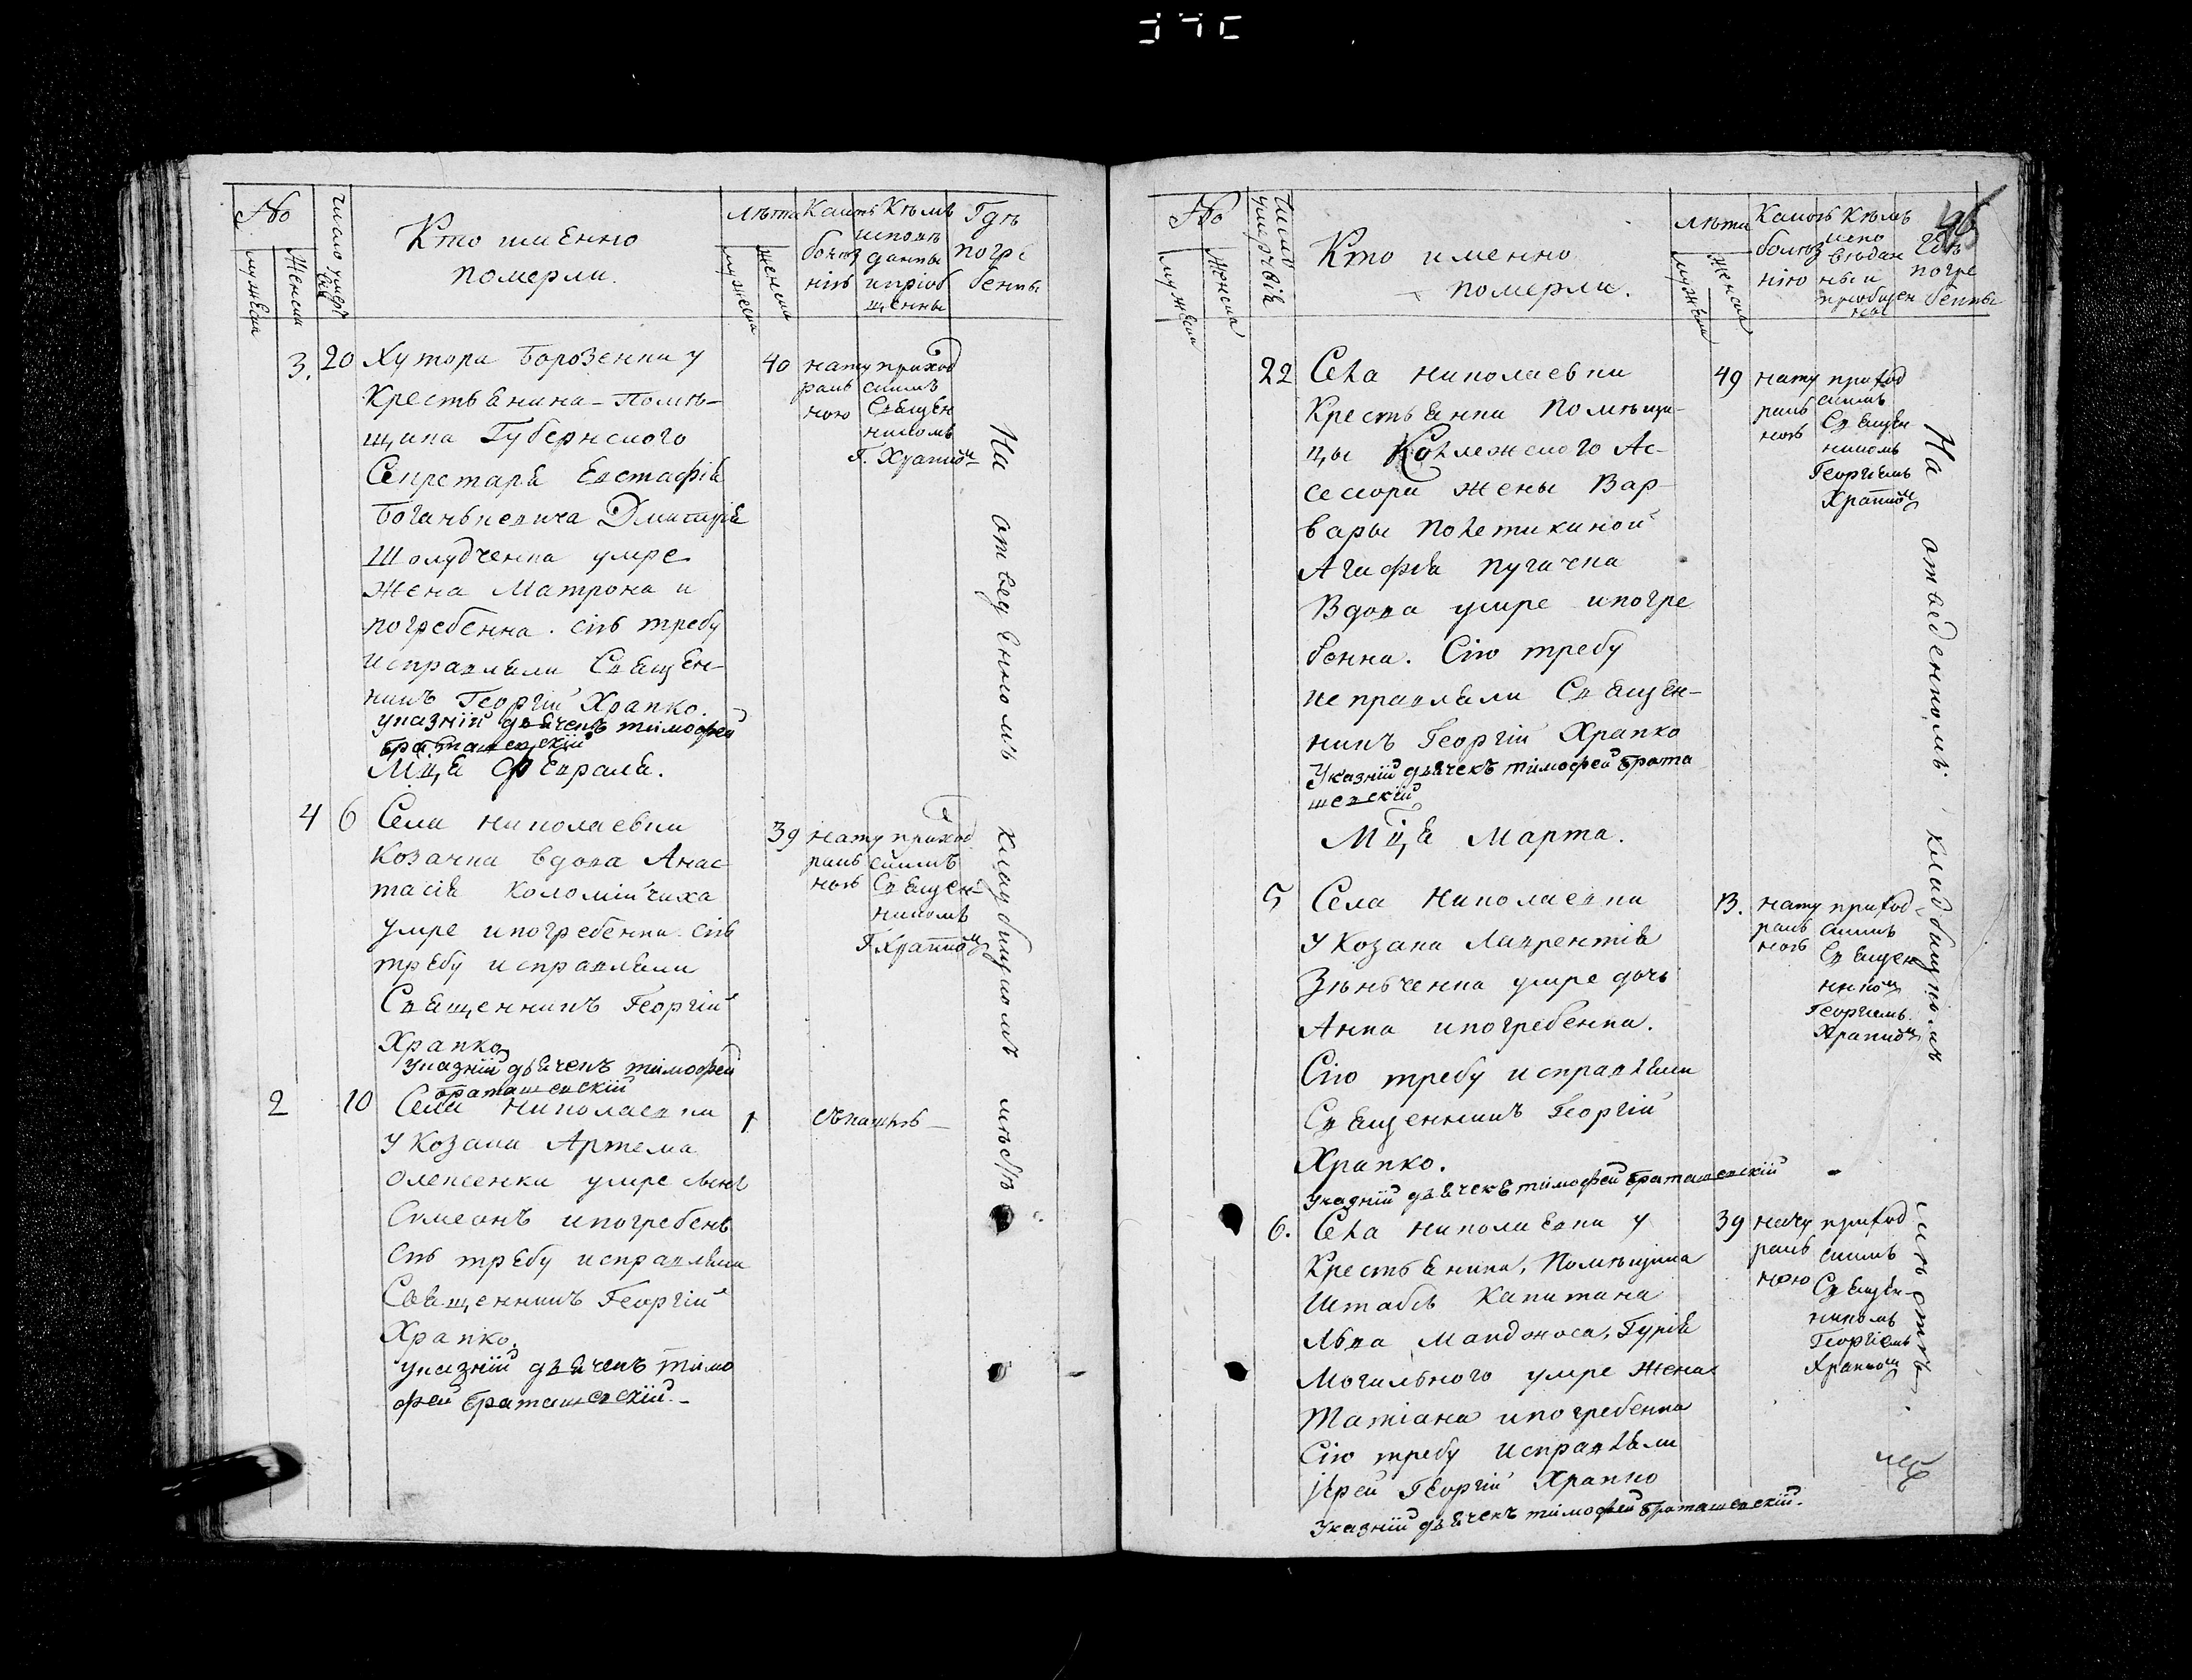 No
мужеска
женска
число умерт
вія
Кто именно
померли.
Лѣта
мужеска
женска
Какою
болѣз
нію
Кѣмъ
исповѣ
даны
и пріоб
щенны
Гдѣ
погре
бенны
3. 20 Хутора Борозенки у
Крестьянина Помѣ-
щика Губернского
Секретаря Евстафія
Дмитрія
Шолудченка умре
жена Матрона и
погребенна. сію требу
исправляли Священ-
никъ Георгій Храпко.
указній дьячекъ тимофей
браташевскій
40
нату
раль
ною
приход
скимъ
Священ
никомъ
Г. Храпкой
Мца Февраля.
4 6 Села николаевки
козачка вдова Анас
тасія коломійчиха
умре и погребенна сію
требу исправляли
Священникъ Георгій
Храпко
указній дьячекъ тимофей
браташевскій
39
нату
раль
ною
приход
скимъ
Священ-
никомъ
Г. Храпкой
2 10 Села николаевки
у козака Артема
олексенки умре сынъ
Симеонъ и погребенъ
сію требу исправляли
Священникъ Георгій
Храпко.
указній дьячекъ тимо
фей браташевскій.-
1
На отведенномъ кладбищномъ мѣстѣ
No
мужеска
женска
число
умертвія
Кто именно
померли.
Лѣта
мужеска
женска
Какою
болѣз
нію
Кѣмъ
испо
вѣдан
ны и
приобщен
ны
Гдѣ
погре
бенны
22 Села николаевки
Крестьянка Помѣщи-
цы Коллежского Ас-
сесора жены Вар-
вары полетикиной
Агафія пугачка
Вдова умре и погре
бенна. Сію требу
исправляли Священ-
никъ Георгій Храпко
Указній дьячекъ тимофей брата
шевскій
49
нату
раль
ною
приход
скимъ
Священ
никомъ
Георгіемъ
Храпкой
Мца Марта.
5 Села николаевки
у козака Лаврентія
Зѣньченка умре дочь
Анна и погребенна.
Сію требу исправляли
Священникъ Георгій
Храпко.
Указній дьячекъ тимофей браташевскій
13.
нату
раль
ною
приход
скимъ
Священ
никой
Георгіемъ
Храпкой
6. Села николаевки у
Крестьянина, Помѣщика
Штабсъ Капитана
Льва Гурія
Могильного умре жена
Татіана и погребенна
Сію требу исправляли
іерей Георгій Храпко
Указній дьячекъ тимофей браташевскій.
39
нату
раль
ною
приход
скимъ
Священ-
никомъ
Георгіемъ
Храпкой
На отведенномъ кладбищномъ мѣстѣ.